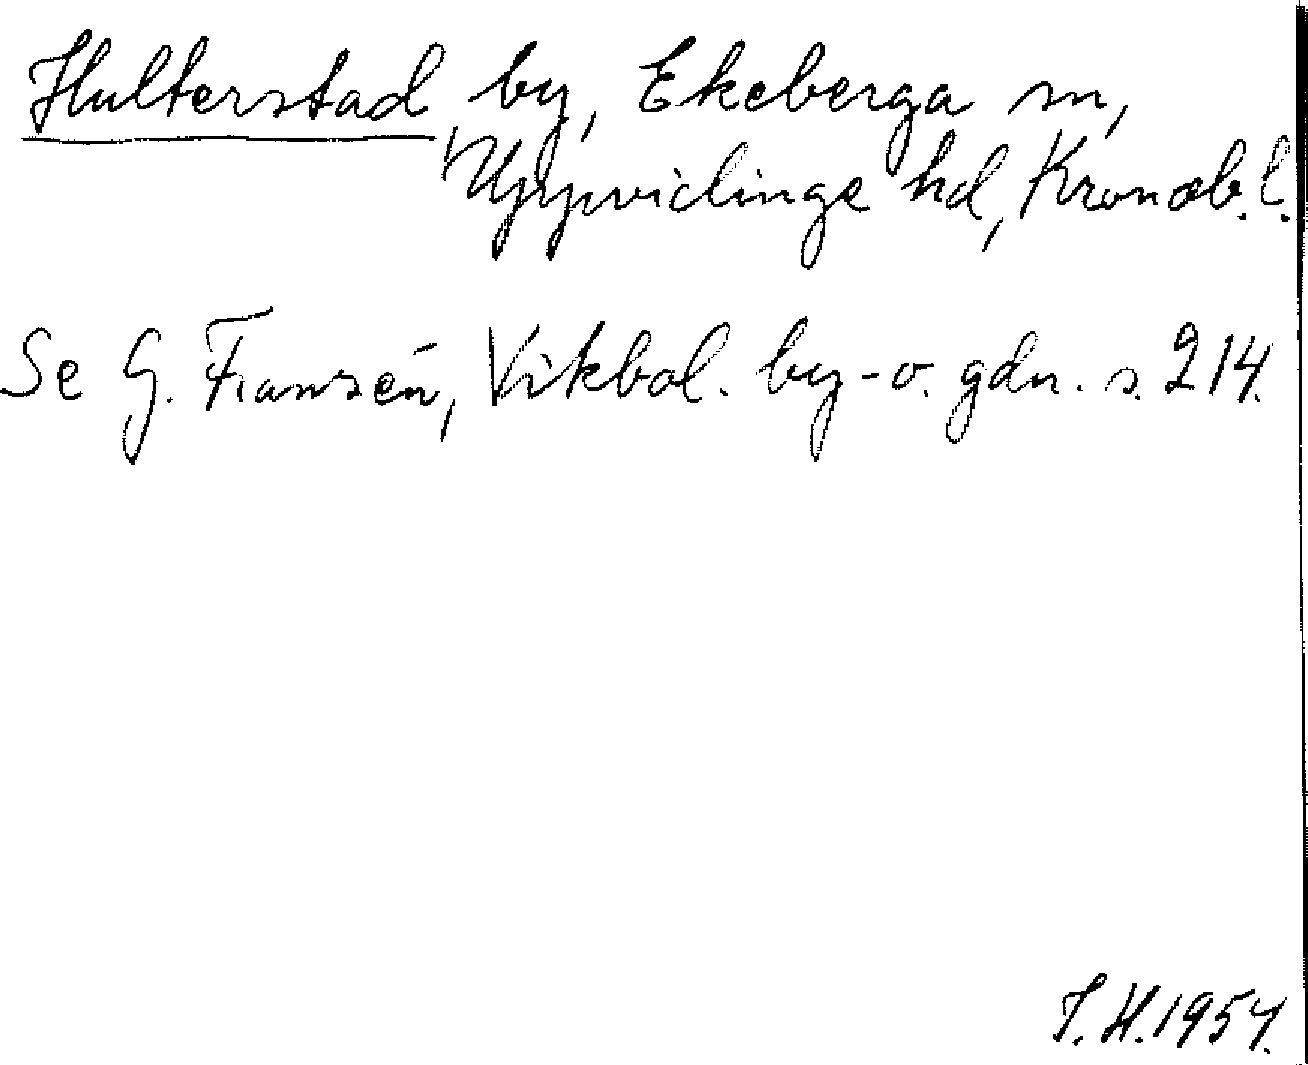 Hulterstad by, Ekeberga sn,
Uppvidinge hd, Kronob. l.
Se G. Franzén, Vikbol. by- o. gdn. s. 214.
I. H. 1954.